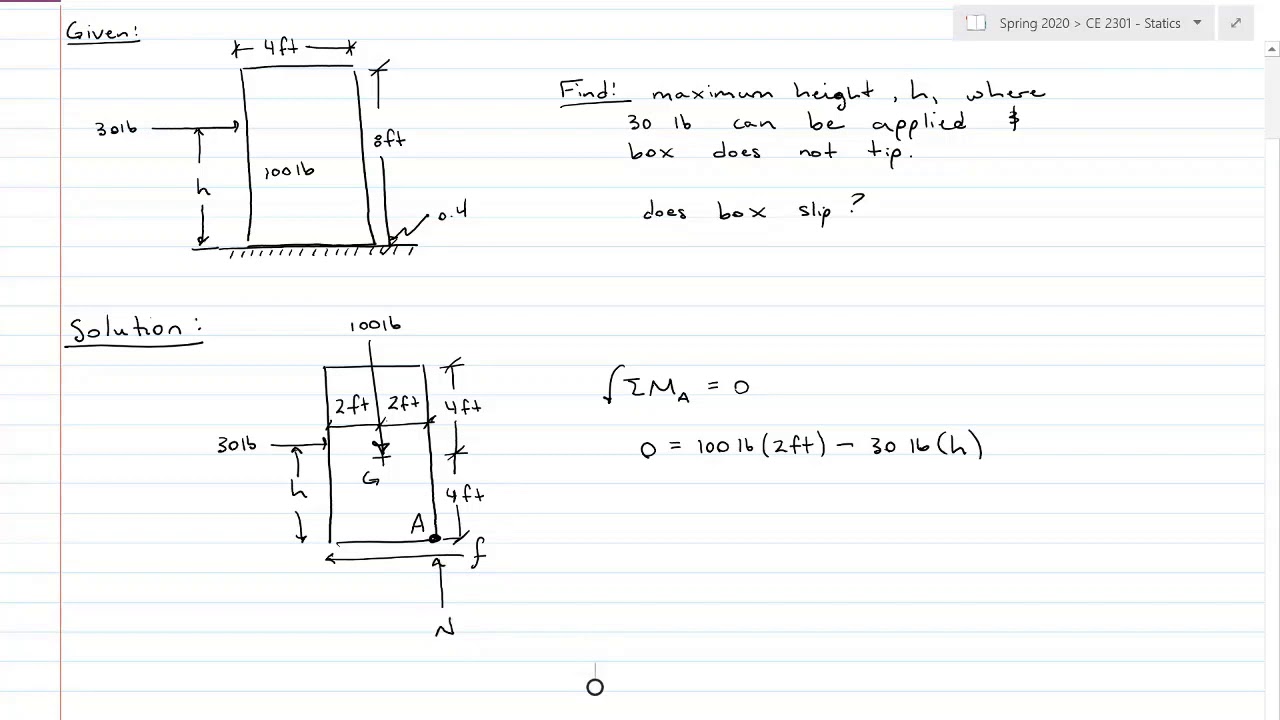 Spring 2020 > CE 2301 - Statics
Given:
4ft
30lb
h
100lb
8ft
0.4
Find: maximum height, h, where
30 lb can be applied &
box does not tip.
does box slip?
Solution:
100lb
2ft 2ft
4ft
30lb
G
h
4ft
A
f
N
ΣM_A = 0
0 = 100 lb (2ft) - 30 lb (h)